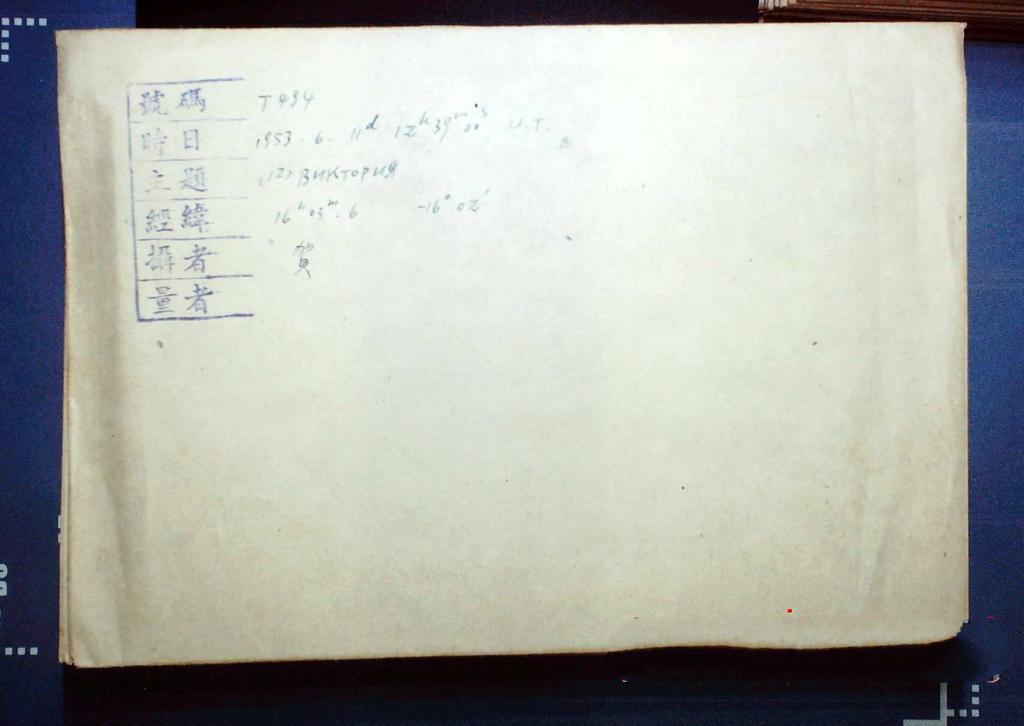 號碼 T494
時日 1953. 6. 11ᵈ 12ʰ 39ᵐ 00ˢ U.T.
主題 (12) ВИКТОРИЯ
經緯 16ʰ 03ᵐ.6 -16° 02'
攝者 賀
量者